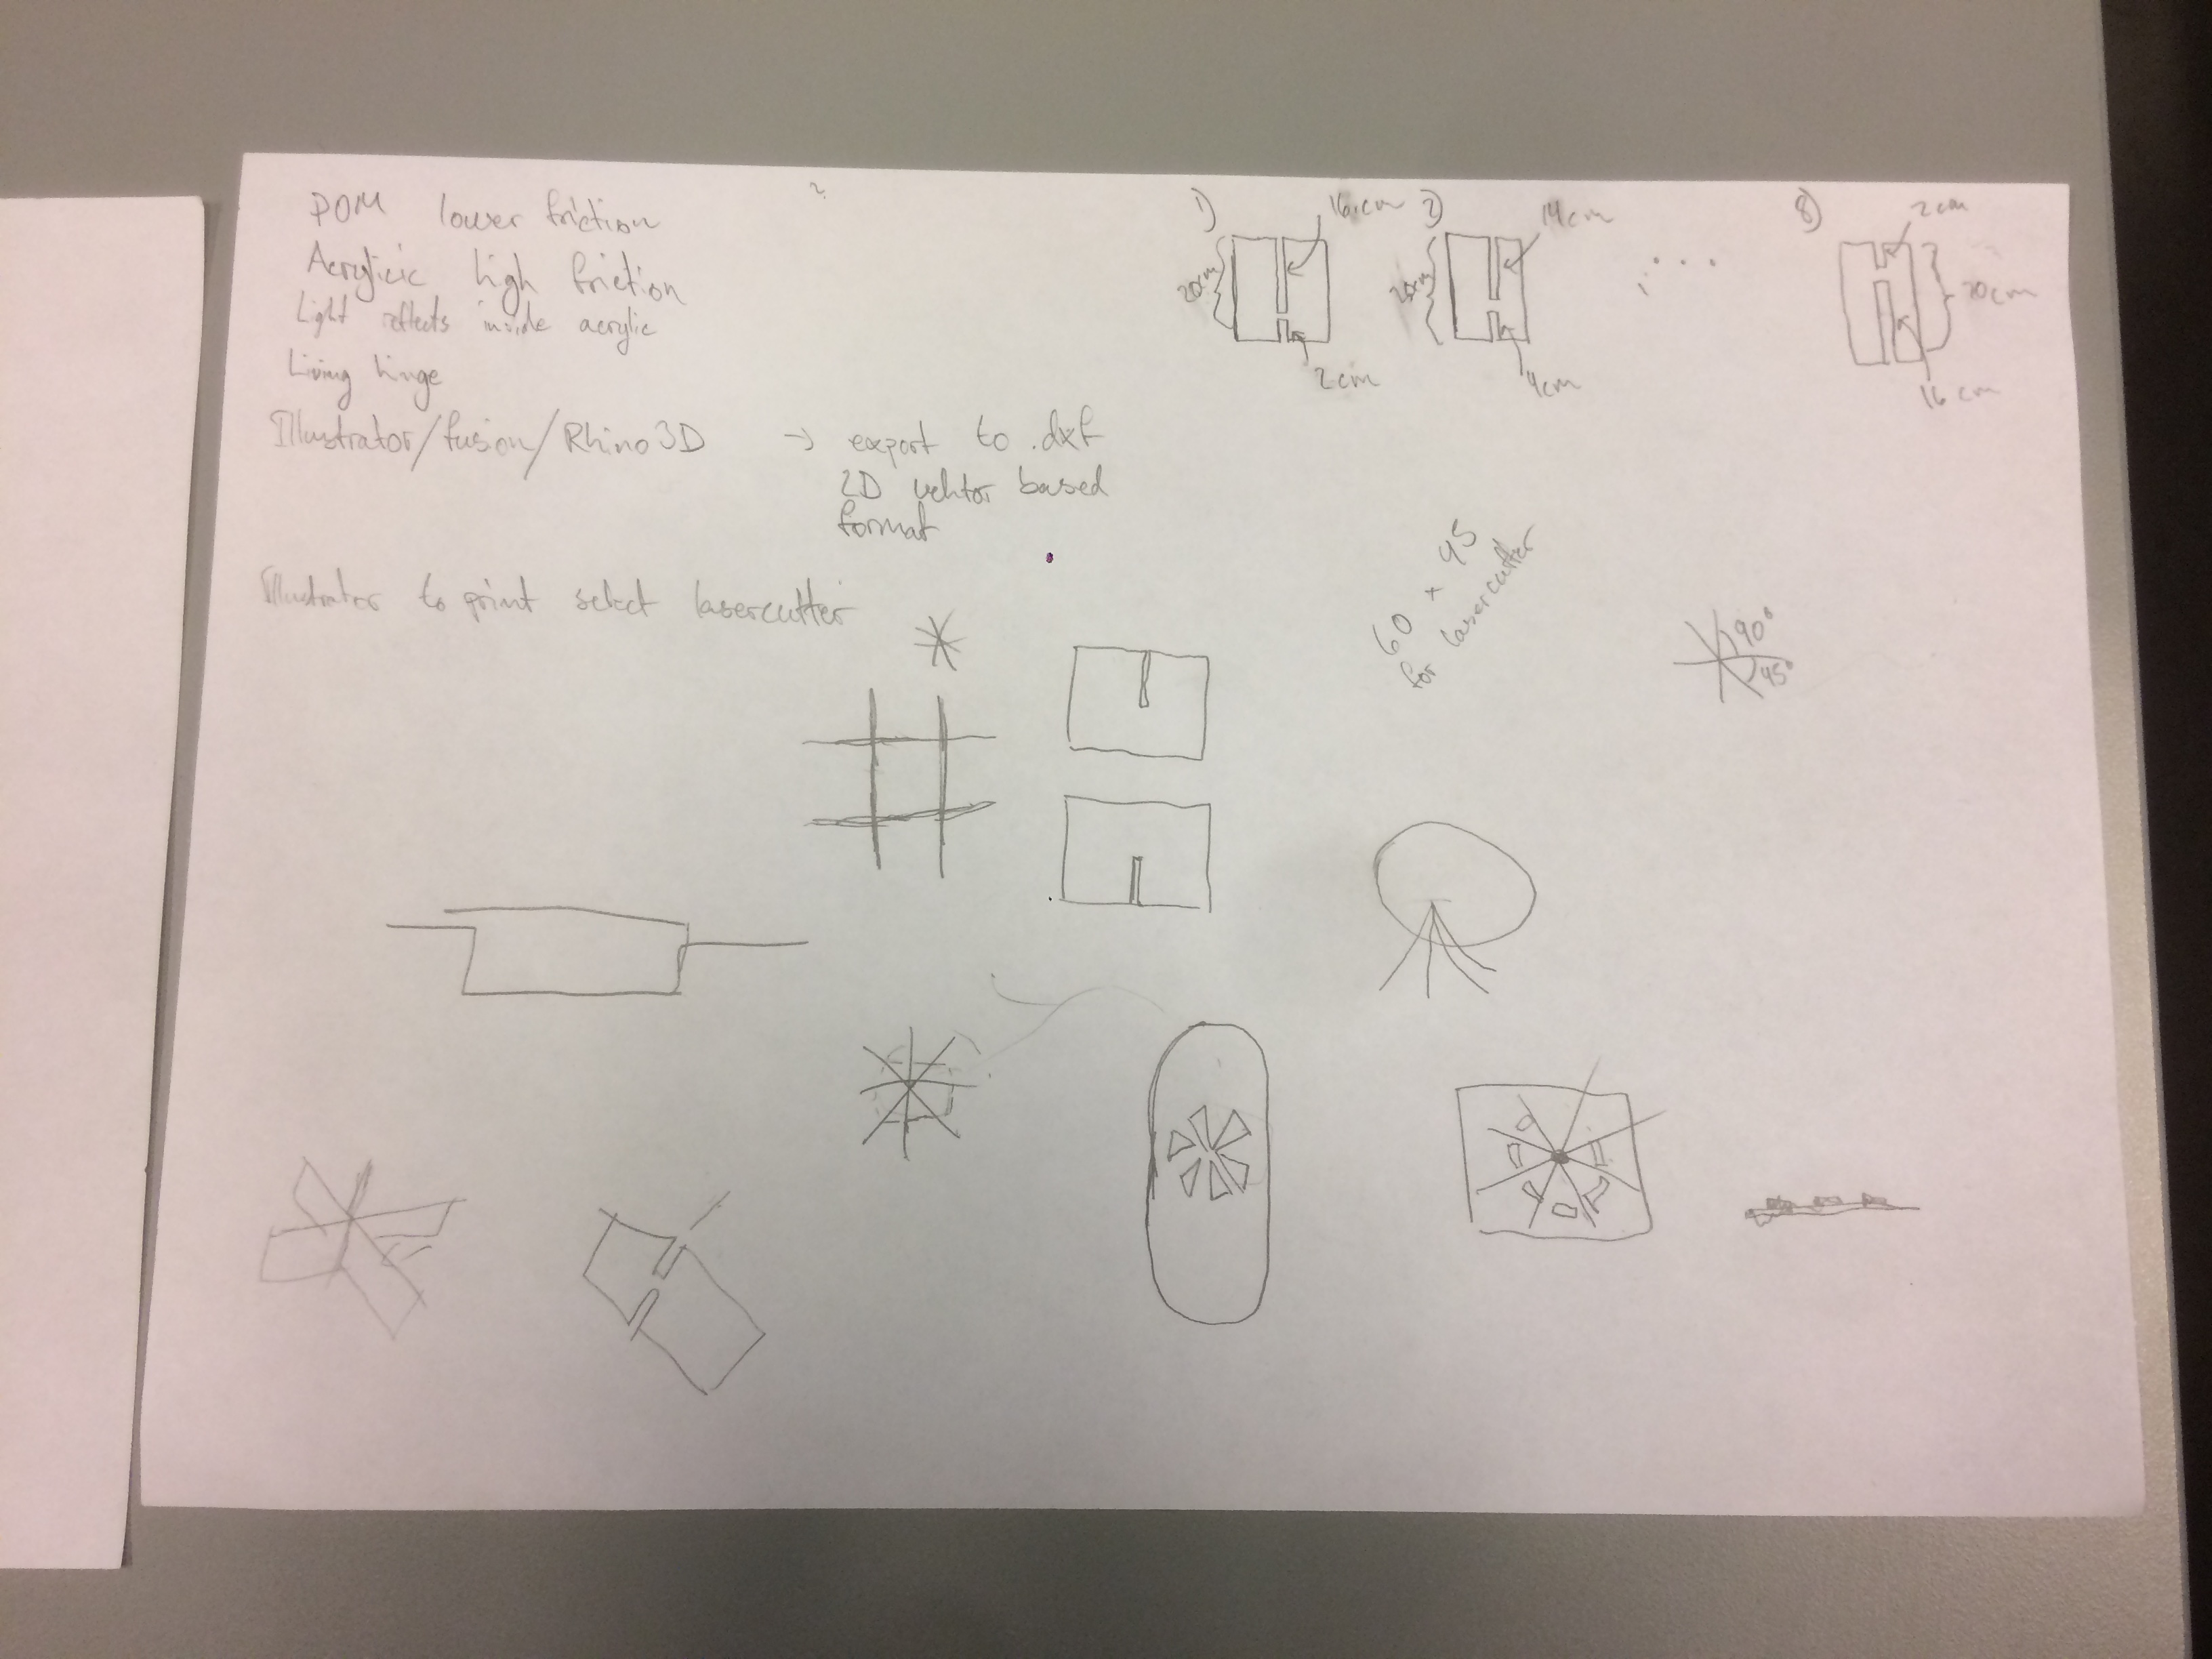 POM lower friction
Acrylic high friction
Light reflects inside acrylic
Living hinge
Illustrator/fusion/Rhino3D → export to .dxf
2D vektor based
format
Illustrator to print select lasercutter
?
1)
20cm
16cm
2cm
2)
20cm
14cm
4cm
...
8)
2cm
20cm
16cm
60 + 45
for lasercutter
90°
45°